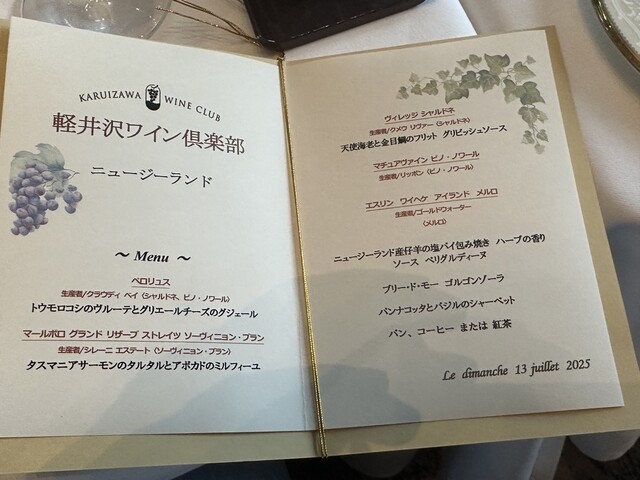 KARUIZAWA WINE CLUB
軽井沢ワイン倶楽部
ニュージーランド
～ Menu ～
ペロリュス
生産者/クラウディ ベイ (シャルドネ、ピノ・ノワール)
トウモロコシのヴルーテとグリエールチーズのグジェール
マールボロ グランド リザーブ ストレイツ ソーヴィニョン・ブラン
生産者/シレーニ エステート (ソーヴィニョン・ブラン)
タスマニアサーモンのタルタルとアボカドのミルフィーユ
ヴィレッジ シャルドネ
生産者/クメウ リヴァー (シャルドネ)
天使海老と金目鯛のフリット グリビッシュソース
マチュアヴァイン ピノ・ノワール
生産者/リッポン (ピノ・ノワール)
エスリン ワイヘケ アイランド メルロ
生産者/ゴールドウォーター
(メルロ)
ニュージーランド産仔羊の塩パイ包み焼き ハーブの香り
ソース ペリグルディーヌ
ブリー・ド・モー ゴルゴンゾーラ
パンナコッタとバジルのシャーベット
パン、コーヒー または 紅茶
Le dimanche 13 juillet 2025